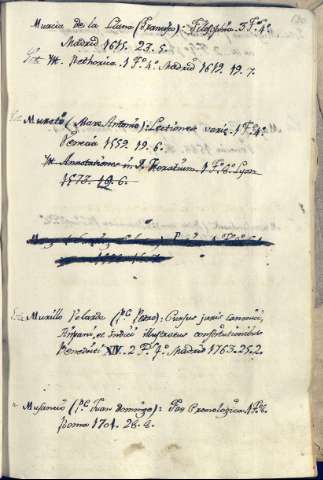 Murcia de la Llana (Francisco): Filosofia. 3. Fs. 4º
Madrid 1615. 23. 5.
Yt. Rethorica. 1 Fº. 4º. Madrid 1619. 19. 7.
Mureto (Marc. Antonio): Lectiones variæ. 1 Fº. 4º
Venecia 1559. 19. 6.
Yt. Annotationes in Horatium. 1 Fº. 8º. Lyon
1573. 19. 6.
Murillo Velarde (Pe. Pedro): Cursus juris canonici,
Hispani, et Indici illustratus constitutionibus
Benedicti XIV. 2 Fs. 4º. Madrid 1763. 25. 2.
Musancio (Pe. Juan Domingo): Fax Cronologica. 1 Fº. 8.
Roma 1701. 26. 6.